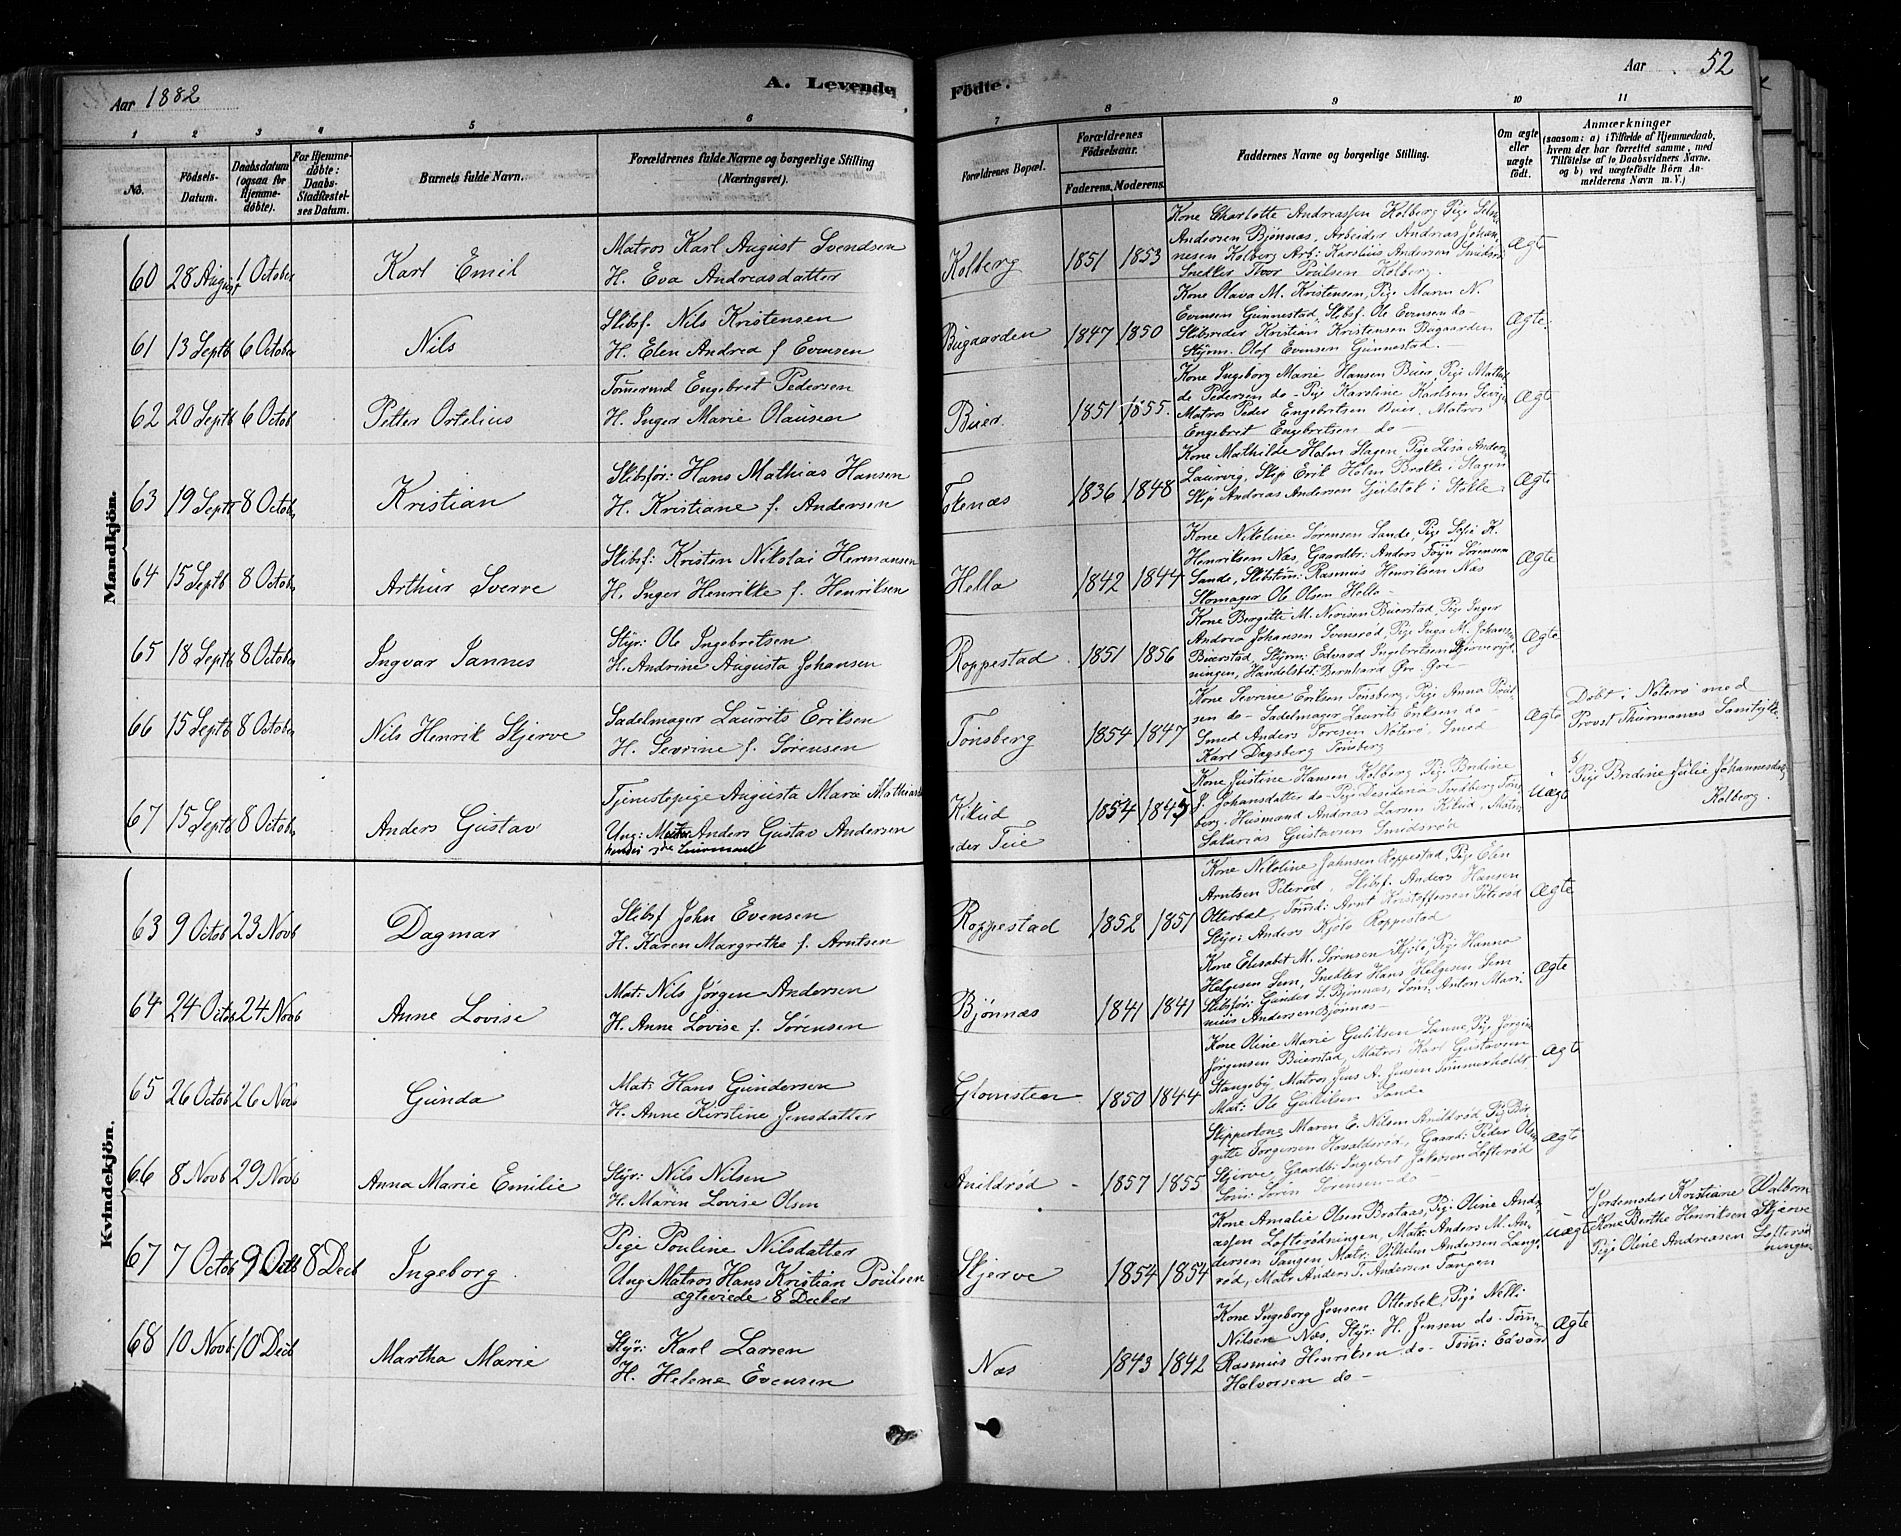 Aar 1882
A. Levende Födte.
Aar 52
1 2 3 4 5 6 7 8 9 10 11
No.
Födsels-Datum.
Daabsdatum (ogsaa for Hjemmedöbte).
For Hjemmedöbte: Daabs-Stadfæstelses Datum.
Barnets fulde Navn.
Forældrenes fulde Navne og borgerlige Stilling (Næringsvei).
Forældrenes Bopæl.
Forældrenes Födselsaar.
Faderens. Moderens.
Faddernes Navne og borgerlige Stilling.
Om ægte eller uægte födt.
Anmærkninger
(saasom: a) i Tilfælde af Hjemmedaab, hvem der har forrettet samme, med Tilföielse af to Daabsvidners Navne. og b) ved uægtefödte Börn Anmelderens Navn m. V.)
Mandkjön.
60 28 August 1 October Karl Emil
Matros Karl August Svendsen
H. Eva Andreasdatter
Kolberg 1851 1853
Kone Charlotte Andreassen Kolberg Pige
Andersen Bjønnæs, Arbeider Andreas Johan-
nesen Kolberg Arb: Karelius Andersen Smidsrød
Snekker Thor Poulsen Kolberg.
Ægte
61 13 Septb 6 October Nils
Skibsf. Nils Kristensen
H. Elen Andrea f. Evensen
Bugaarden 1847 1850
Kone Olava M. Kristensen, Pige Maren N.
Evensen Gunnestad, Skibsf. Ole Evensen do-
Skibsreder Kristian Kristensen Bugaarden
Styrm. Olof Evensen Gunnestad.
Ægte
62 20 Septb 6 Octob Petter Ortelius
Tømermd Engebret Pedersen
H. Inger Marie Olausen
Buer 1851 1855.
Kone Ingeborg Marie Hansen Buer, Pige Mathil-
de Pedersen do- Pige Karoline Karlsen
Matros Peder Engebretsen Buer, Matros
Engebret Engebretsen do-
Ægte
63 19 Septb 8 Octob Kristian
Skibsfør: Hans Mathias Hansen
H. Kristiane f. Andersen
1836 1848
Kone Mathilde Holm Slagen, Pige Lisa Anders
Laurvig, Skip Erik Holm Brække i Slagen
Skip Andreas Andersen i Stokke
Ægte
64 15 Septb 8 Octob Arthur Sverre
Skibsf: Kristen Nikolai Hermansen
H. Inger Henrikke f. Henriksen
Hella 1842 1844
Kone Nikoline Sørensen Sande, Pige Sofie K.
Henriksen Næs, Gaardbr: Anders Føyn Sørensen
Sande, Skibstøm: Rasmus Henriksen Næs
Skomager Ole Olsen Hella-
Ægte
65 18 Septb 8 October Ingvar Jannes
Styr: Ole Ingebretsen
H. Andrine Augusta Johansen
Roppestad 1851 1856
Kone Bergitte M. Buerstad, Pige Inger
Andrea Johansen Svensrød, Pige Inga M. Johansen
Buerstad, Styrm: Edvard Ingebretsen Skjerveryd-
ningen, Handelsbet: Bernhard
Ægte
66 15 Septb 8 October Nils Henrik Skjerve
Sadelmager Laurits Eriksen
H. Severine f. Sørensen
Tønsberg 1854 1847
Kone Sevrine Eriksen Tønsberg, Pige Anna Poul-
sen do- Sadelmager Laurits Eriksen do-
Smed Anders Toresen Nøterø, Smed
Karl Dagsberg Tønsberg
Ægte
Døbt i Nøterø med
Provst Thurmanns Samtykke
67 15 Septb 8 October Anders Gustav
Tjenestepige Augusta Marie
Ung: Matros Anders Gustav Andersen
Kikud
under Teie
1854 1845
Kone Justine Hansen Kolberg Pige Bredine
J. Johansdatter do- Pige Desideria Svedberg Tøns-
berg. Husmand Andreas Larsen Kikud, Matros
Sakarias Gustavsen Smidsrød
Uægte
Pige Bredine Julie Johannesdatter
Kolberg.
Kvindekjön.
63 9 Octob 23 Novb Dagmar
Skibsf John Evensen
H. Karen Margrethe f. Arntsen
Roppestad 1852 1851
Kone Nikoline Johnsen Roppestad, Pige Elen
Arntsen Peterød, Skibsf. Anders Hansen
Otterbæk, Tømd: Arnt Kristoffersen Peterød
Styr: Anders Kjølø Roppestad
Ægte
64 24 Octob 24 Nov Anne Lovise
Mat: Nils Jørgen Andersen
H. Anne Lovise f. Sørensen
Bjønnæs 1841 1841
Kone Elisabet M. Sørensen Kjøle, Pige Hanna
Helgesen Sem, Snedker Hans Helgesen Sem
Skibsfør: Gunder S. Bjønnæs, Tøm: Anton Mari-
nius Andersen Bjønnæs-
Ægte
65 26 Octob 26 Nov Gunda
Mat: Hans Gundersen
H. Anne Kirstine Jensdatter
Glomsten 1850 1844
Kone Oline Marie Gulliksen Sanne, Pige Jørgine
Jørgensen Buerstad, Matros Karl Gustavsen
Stangeby, Matros Jens A. Jensen Tømmerholdt,
Mat: Ole Gulliksen Sande
Ægte
66 8 Novb 29 Novb Anna Marie Emilie
Styr: Nils Nilsen
H. Maren Lovise Olsen
Arildrød - 1857 1855
Skipperkone Maren E. Nilsen Arildrød, Pig Bør-
gitte Torgersen Haraldsrød, Gaard: Peder Olsen
Skjerve, Gaardb: Ingebret Jakobsen Lofterød
Tøm: Søren Sørensen-do
Ægte
67 7 Octob 9 Octb 8 Decb Ingeborg
Pige Pouline Nilsdatter
Ung Matros Hans Kristian Poulsen
ægteviede 8 Decbr
Skjerve 1854 1854
Kone Amalie Olsen Bostaas, Pig: Oline Andre-
assen Lofterødningen, Matr: Anders M. An-
dersen Tangen, Matr: Vilhelm Andersen
rød, Matr Anders T. Andersen Tangen
uægte
Jordemoder Kristiane Walbom
Kone Berthe Henriksen Skjerve
Pige Oline Andreasen Lofterød
ningen
68 10 Novb 10 Decb Martha Marie
Styr: Karl Larsen
H. Helene Evensen
Næs 1843 1842
Kone Ingeborg Jensen Otterbek, Pige Nelli
Nilsen Næs, Styr: H. Jensen do. Tøm:
Rasmus Henriksen do- Tøm: Edvard
Halvorsen do-
Ægte